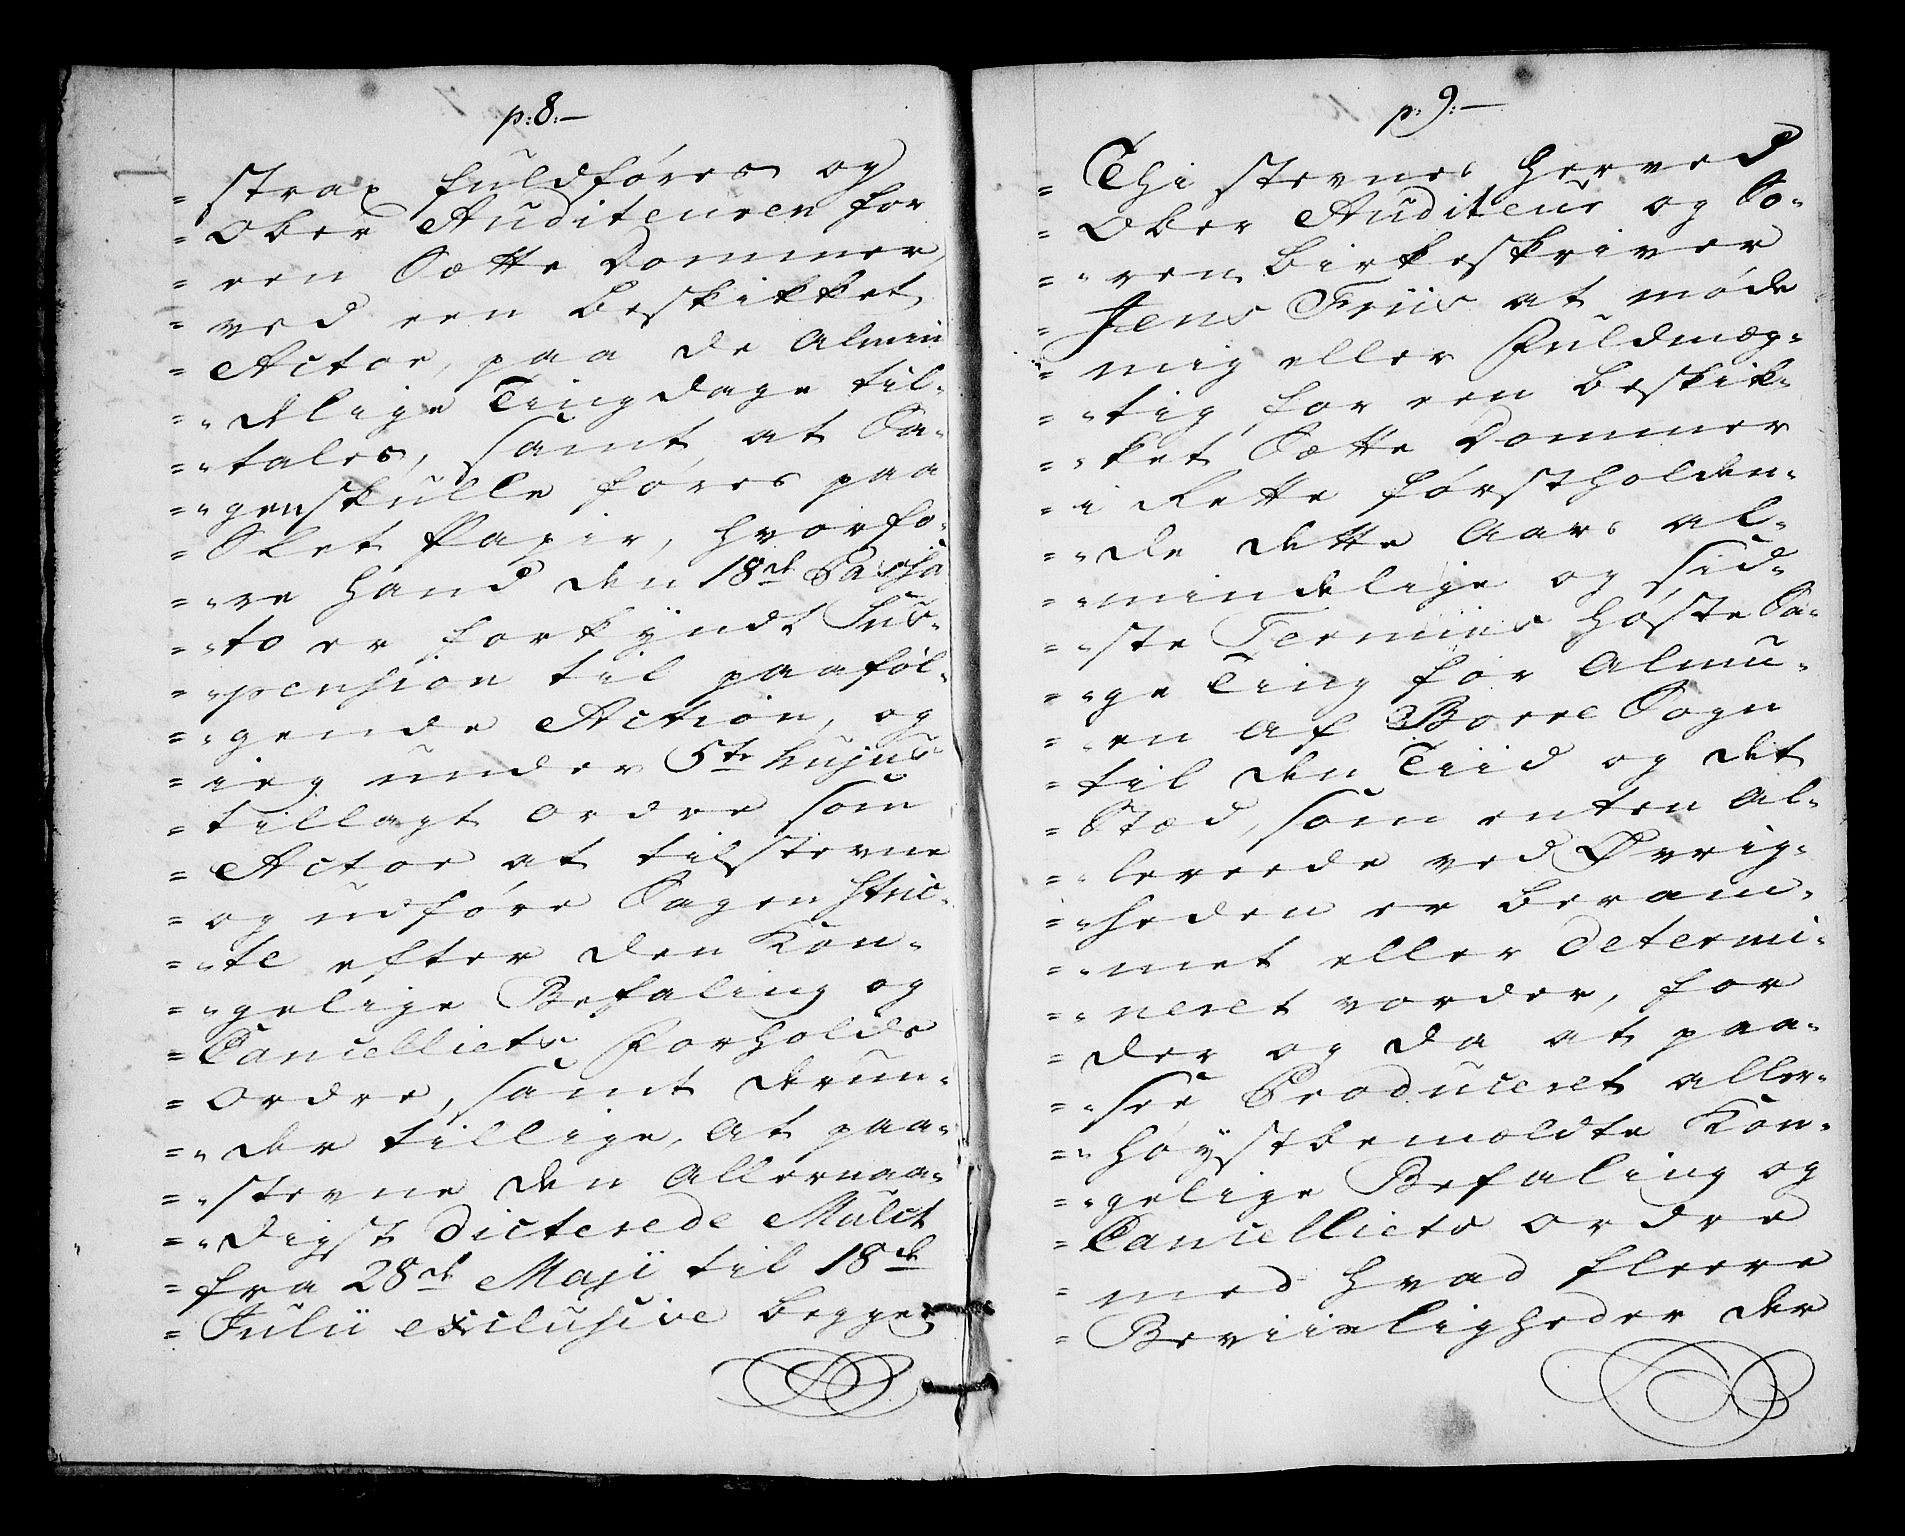 p: 8: —
= strax fuldføres og
= Ober Auditeuren for
= een Sætte Dommer,
= ved een beskikket
= Actor, paa de Almin
= „delige Tingdage til-
= „tales, samt at Sa-
= „gen skulle føres paa
= Slet Papir, hvorfo-
= „re hand den 18de Passa
= „to er forkyndt Sus-
= „pension til paaføl-
= „gende Action, og
= ieg under 5te hujus
= tillagt ordre som
= Actor at tilstevne
= og udføre Sagen stric-
= „te efter den Kon-
= „gelige Befaling og
= Cancelliets Forholds
= Ordre, samt derun-
= „der tillige, at paa-
= „stevne den Allernaa-
= „digst dicterede Mulct
= fra 28de Maji til 18de
= Julii exclusive begge
p: 9: —
= Thi stevnes herved
= Ober Auditeur og So-
= „ren birkeskriver
= Jens Friis at møde
= mig eller Fuldmæg-
= „tig for een beskik-
= „ket Sætte Dommer
= i Rette førstholden-
= „de dette Aars al-
= „mindelige og sid-
= „ste Termins Høste Sa-
= „ge Ting for Almu-
= „en af Borre Sogn
= til den Tiid og det
= Stæd, som enten Al-
= „lereede ved Øvrig-
= „heden er beram-
= „met eller determi-
= „neret vorder, for
= der og da at paa-
= „see Produceret aller-
= „høystbemældte Kon-
= „gelige Befaling og
= Cancelliets Ordre
= med hvad fleere
= Beviisligheder der